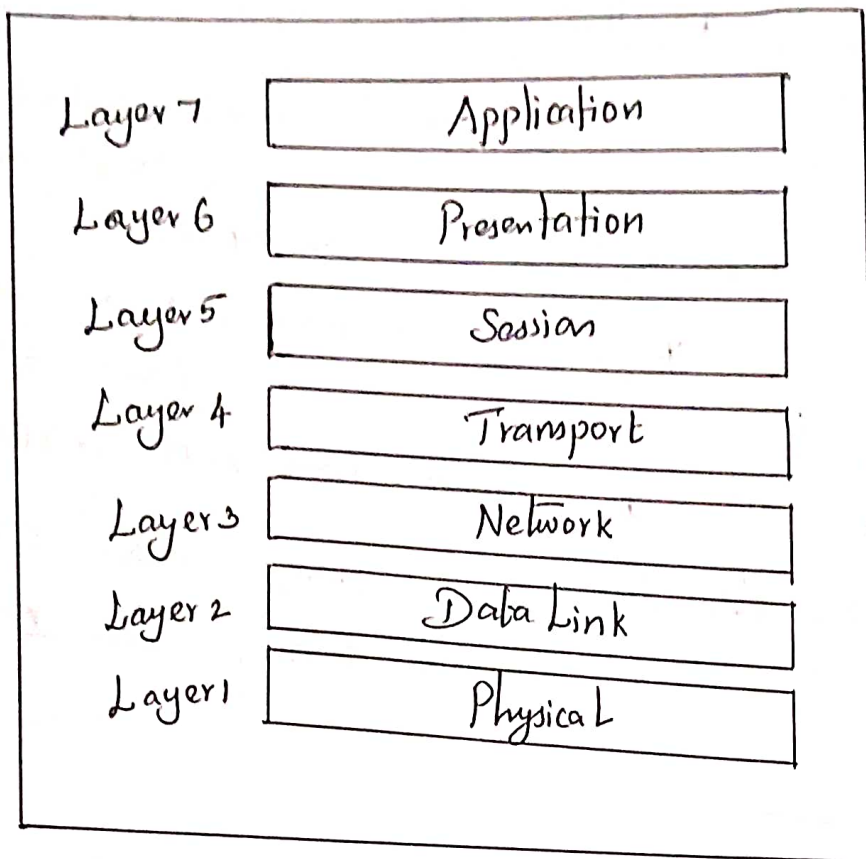 Layer 7 Application
Layer 6 Presentation
Layer 5 Session
Layer 4 Transport
Layer 3 Network
Layer 2 Data Link
Layer 1 Physical